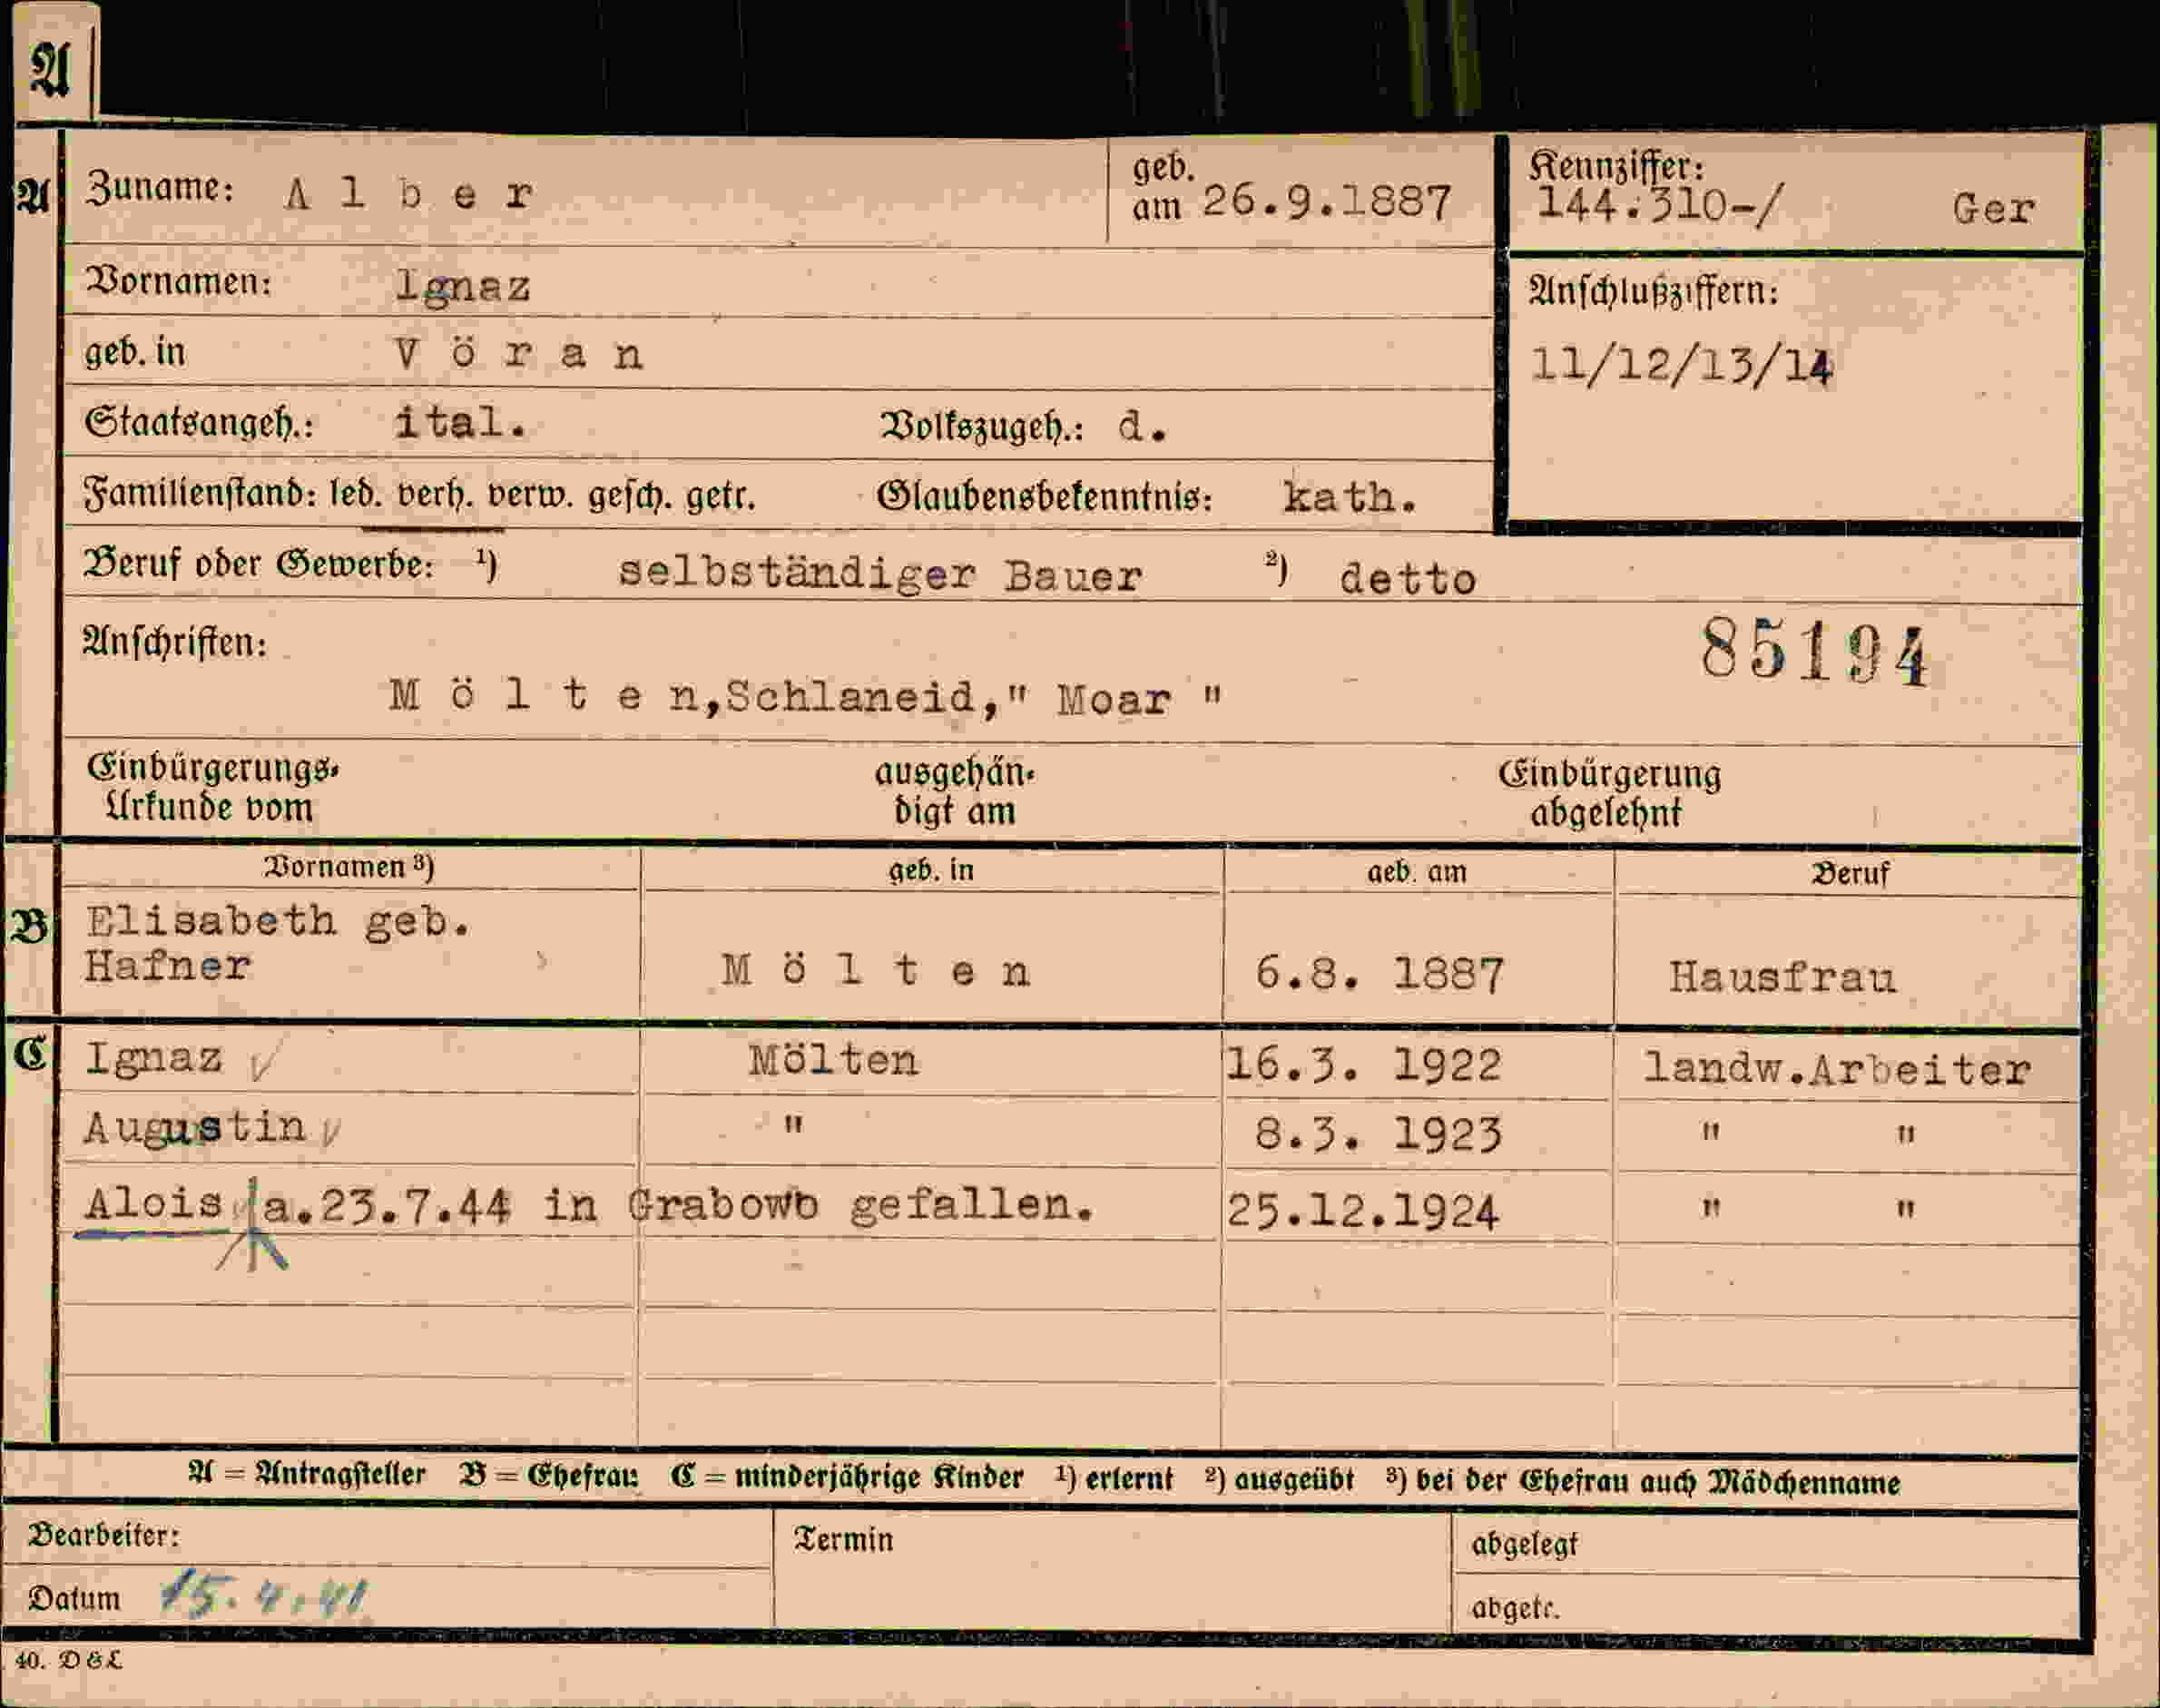 A
A Zuname: A l b e r geb. am 26.9.1887 Kennziffer: 144.310-/ Ger
Vornamen: Ignaz
Anschlußziffern:
geb. in V ö r a n
11/12/13/14
Staatsangeh.: ital. Volkszugeh.: d.
Familienstand: led. verh. verw. gesch. getr. Glaubensbekenntnis: kath.
Beruf oder Gewerbe: ¹) selbständiger Bauer ²) detto
Anschriften:
85194
M ö l t e n,Schlaneid," Moar "
Einbürgerungs-Urkunde vom ausgehändigt am Einbürgerung abgelehnt
Vornamen ³) geb. in geb. am Beruf
B Elisabeth geb.
Hafner M ö l t e n 6.8. 1887 Hausfrau
C Ignaz Mölten 16.3. 1922 landw.Arbeiter
Augustin " 8.3. 1923 " "
Alois a.23.7.44 in Grabowo gefallen. 25.12.1924 " "
A = Antragsteller B = Ehefrau C = minderjährige Kinder ¹) erlernt ²) ausgeübt ³) bei der Ehefrau auch Mädchenname
Bearbeiter: Termin abgelegt
Datum 15.4.41 abgetr.
40. D&L